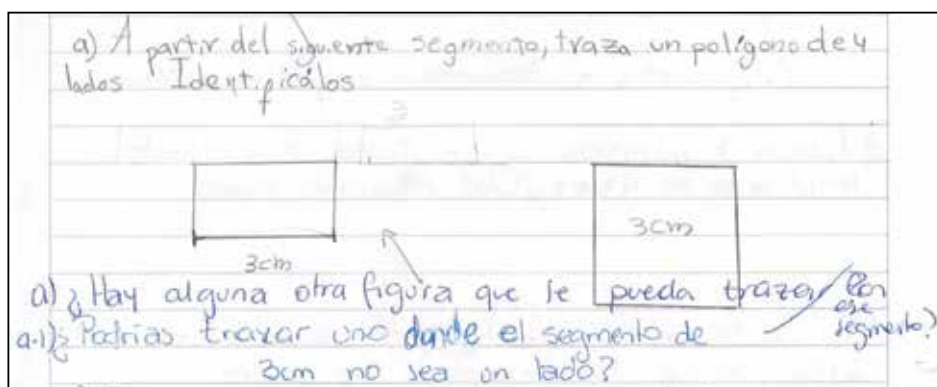 a) A partir del siguiente segmento, traza un polígono de 4
lados Identificálos
3cm
3cm
a) ¿Hay alguna otra figura que se pueda trazar con
ese
segmento?
a.1) ¿Podrías trazar uno donde el segmento de
3cm no sea un lado?